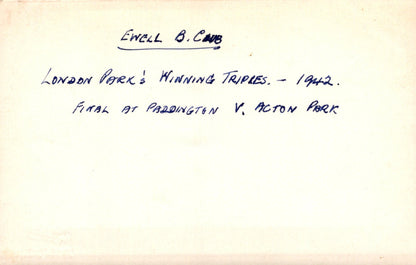 EWELL B. CLUB
LONDON PARK'S WINNING TRIPLES. - 1942.
FINAL AT PADDINGTON V. ACTON PARK